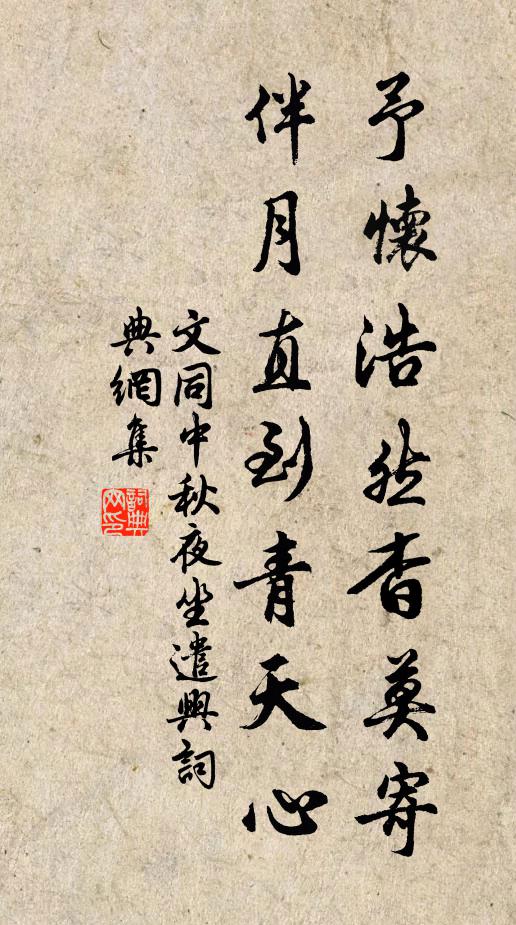 予懷浩然杳莫寄
伴月直到青天心
文同中秋夜坐遣興詞
典網集
詞典网印